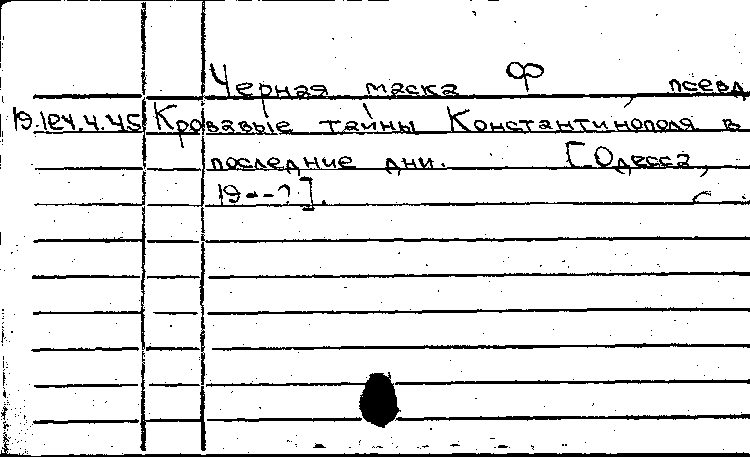 Черная маска Ф, псевд
19.Iеч.4.45 Кровавые тайны Константинополя в
последние дни. [Одесса,
19--?].